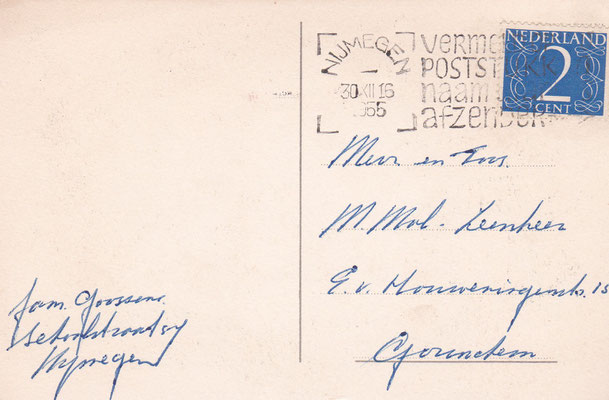 NIJMEGEN
30 XII 16
1955
verme
POSTST KK
naam
afzender
NEDERLAND
2
CENT
en
M. Mol - Leenheer
E. v. Houweningenstr. 15
Gorinchem
fam. Goossens
Nijmegen